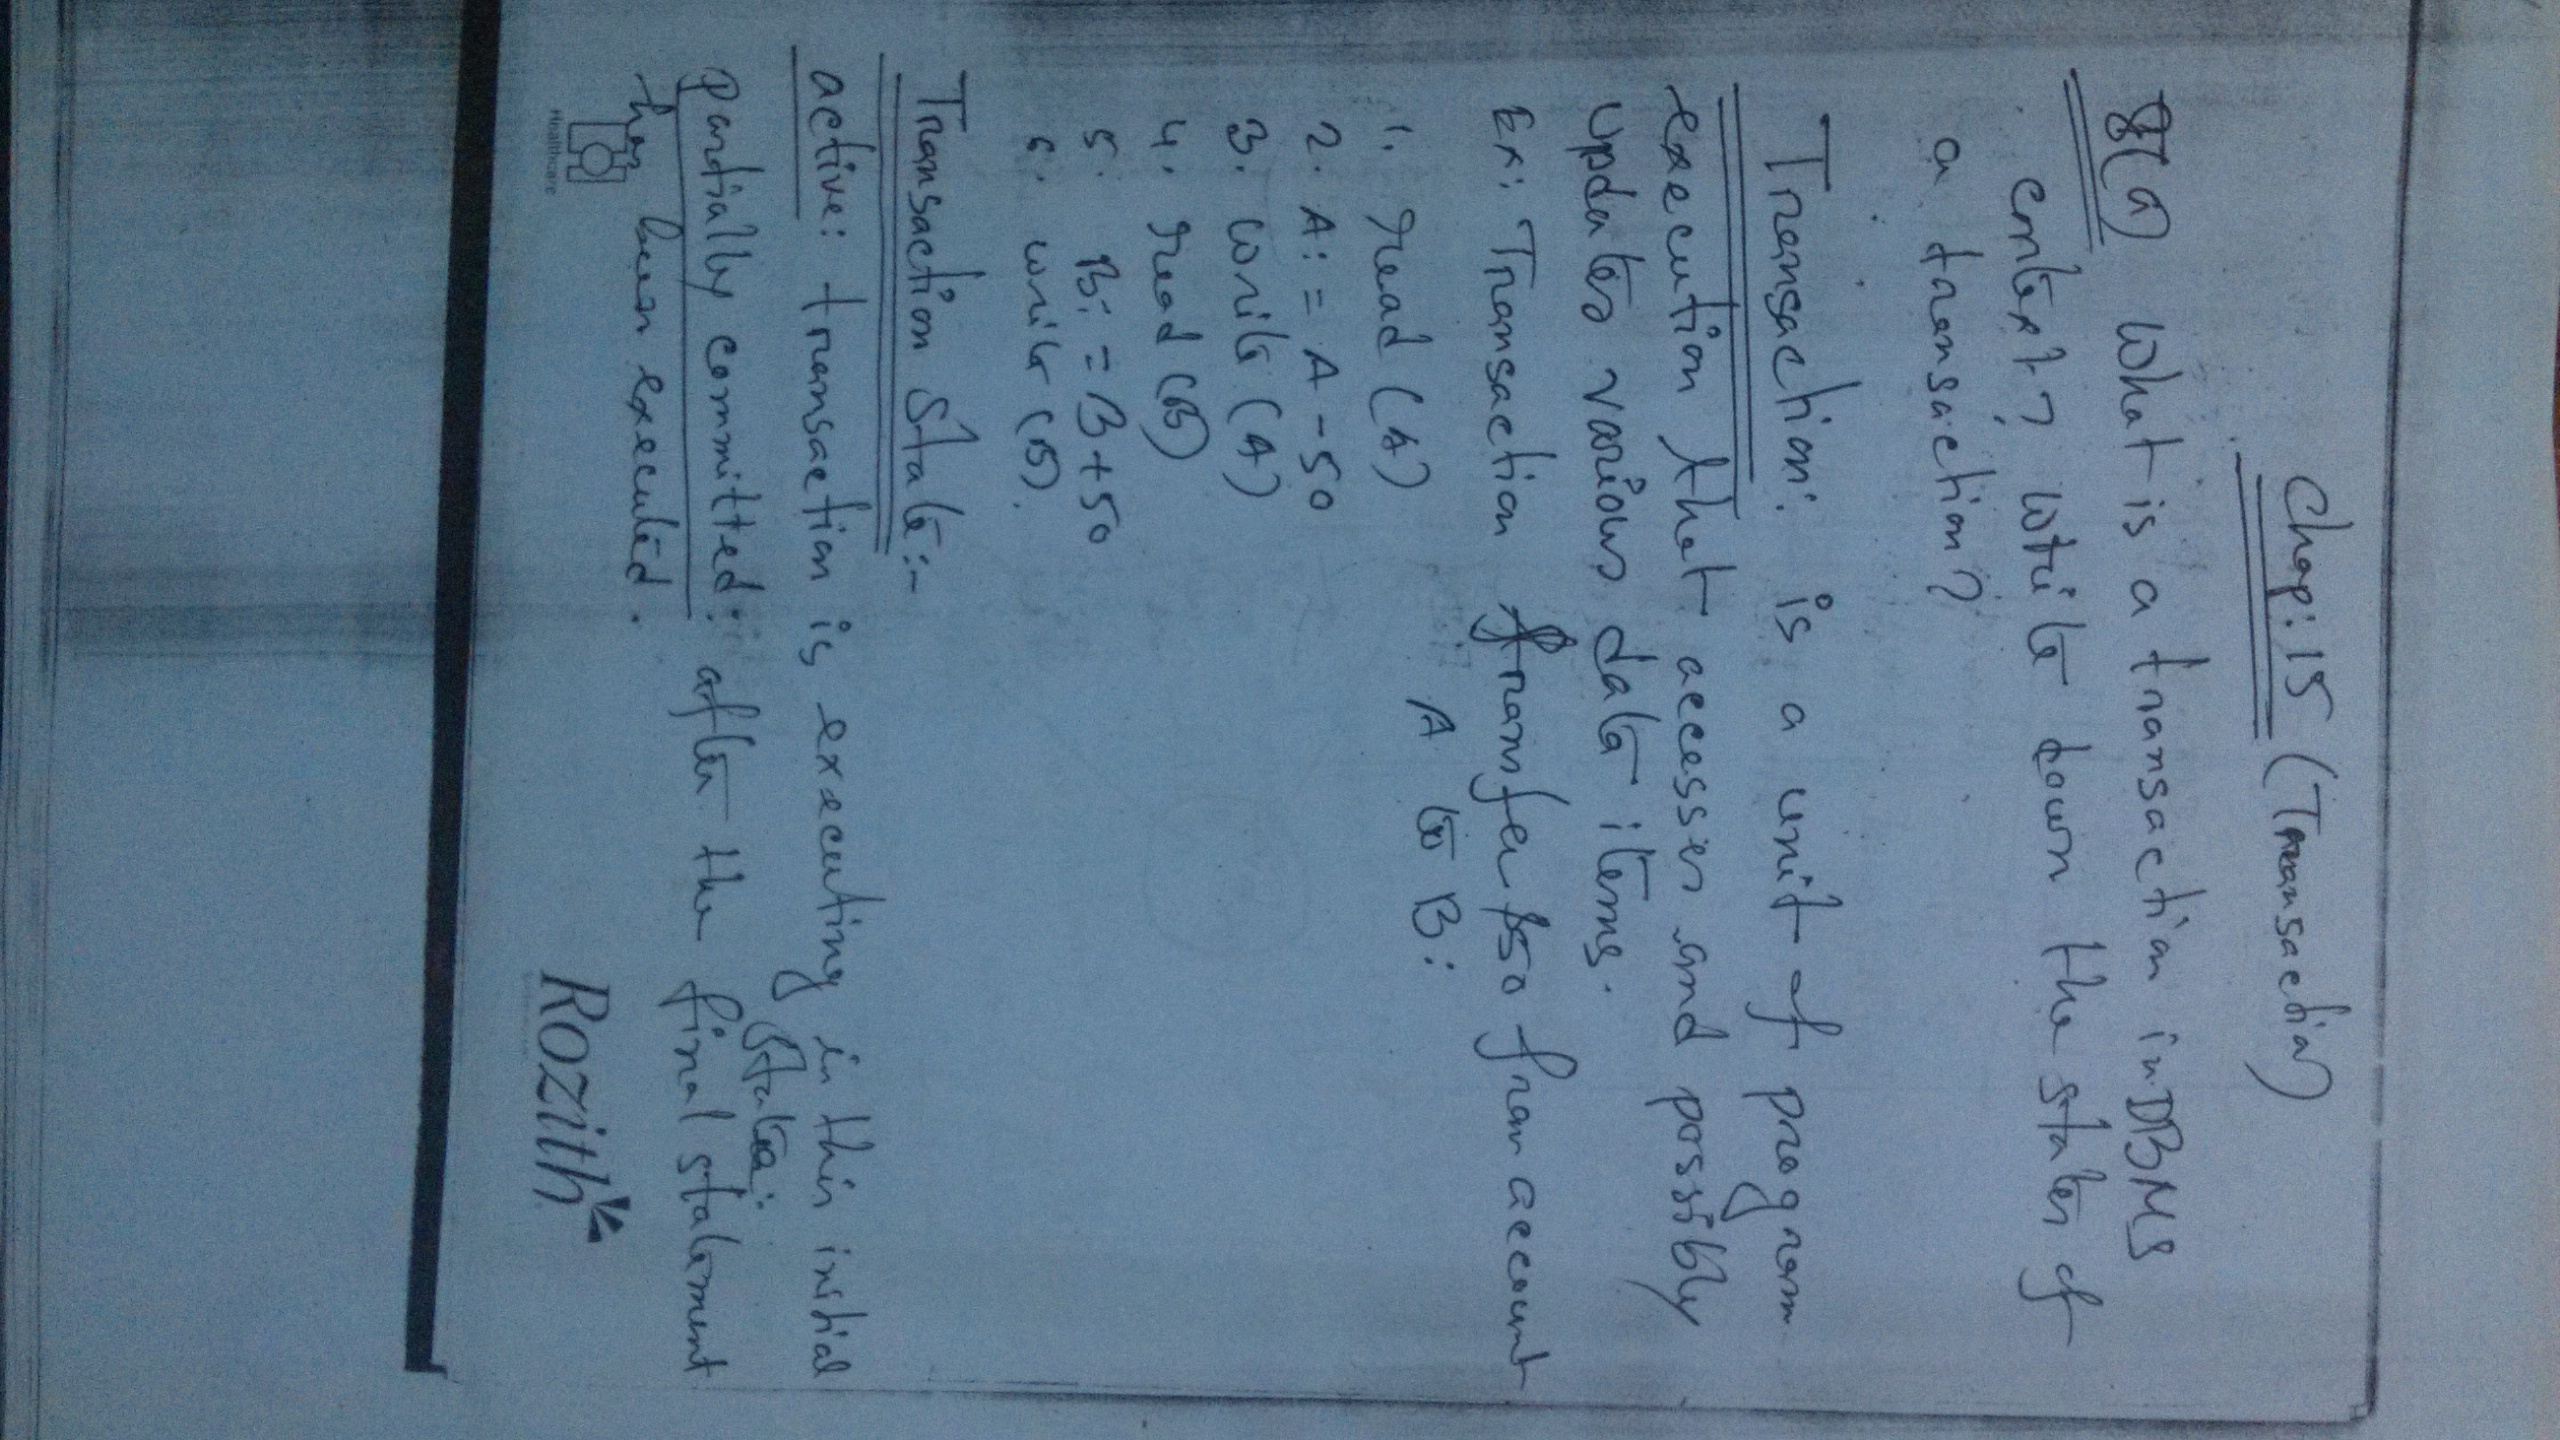 Chap: 15 (Transaction)
8(a) What is a transaction in DBMS
context? Write down the states of
a transaction?
Transaction: is a unit of program
execution that accesses and possibly
updates various data items.
Ex: Transaction transfer $50 from account
A to B:
1. read (A)
2. A: = A - 50
3. write (A)
4. read (B)
5. B: = B + 50
6. write (B).
Transaction State:-
active: transaction is executing in this initial
state:
partially committed: after the final statement
has been executed.
Healthcare
Rozith